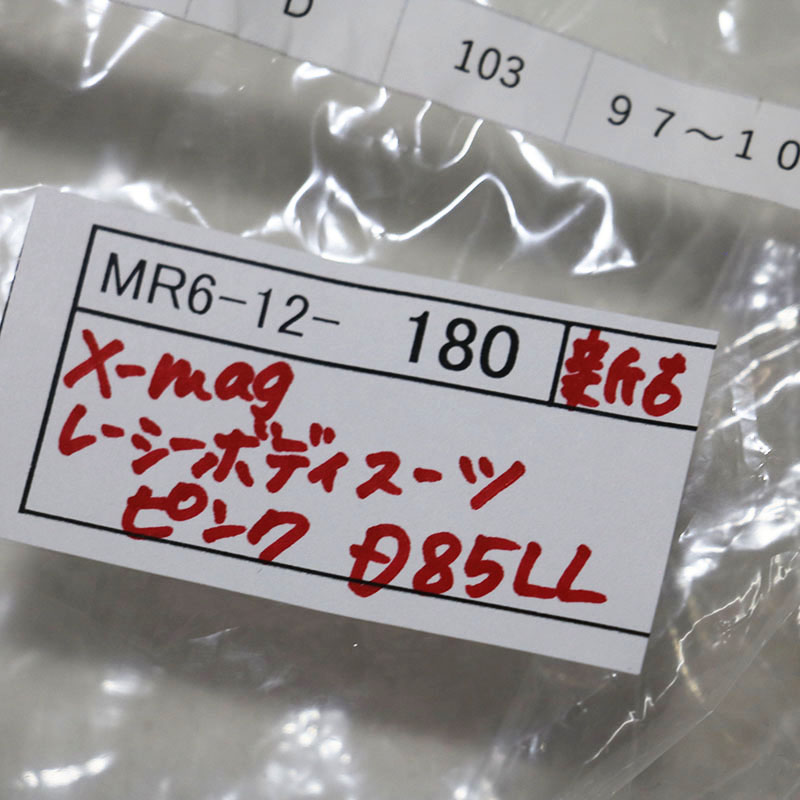 D 103 97~10
MR6-12- 180 新古
X-mag
レーシーボディスーツ
ピンク D85LL